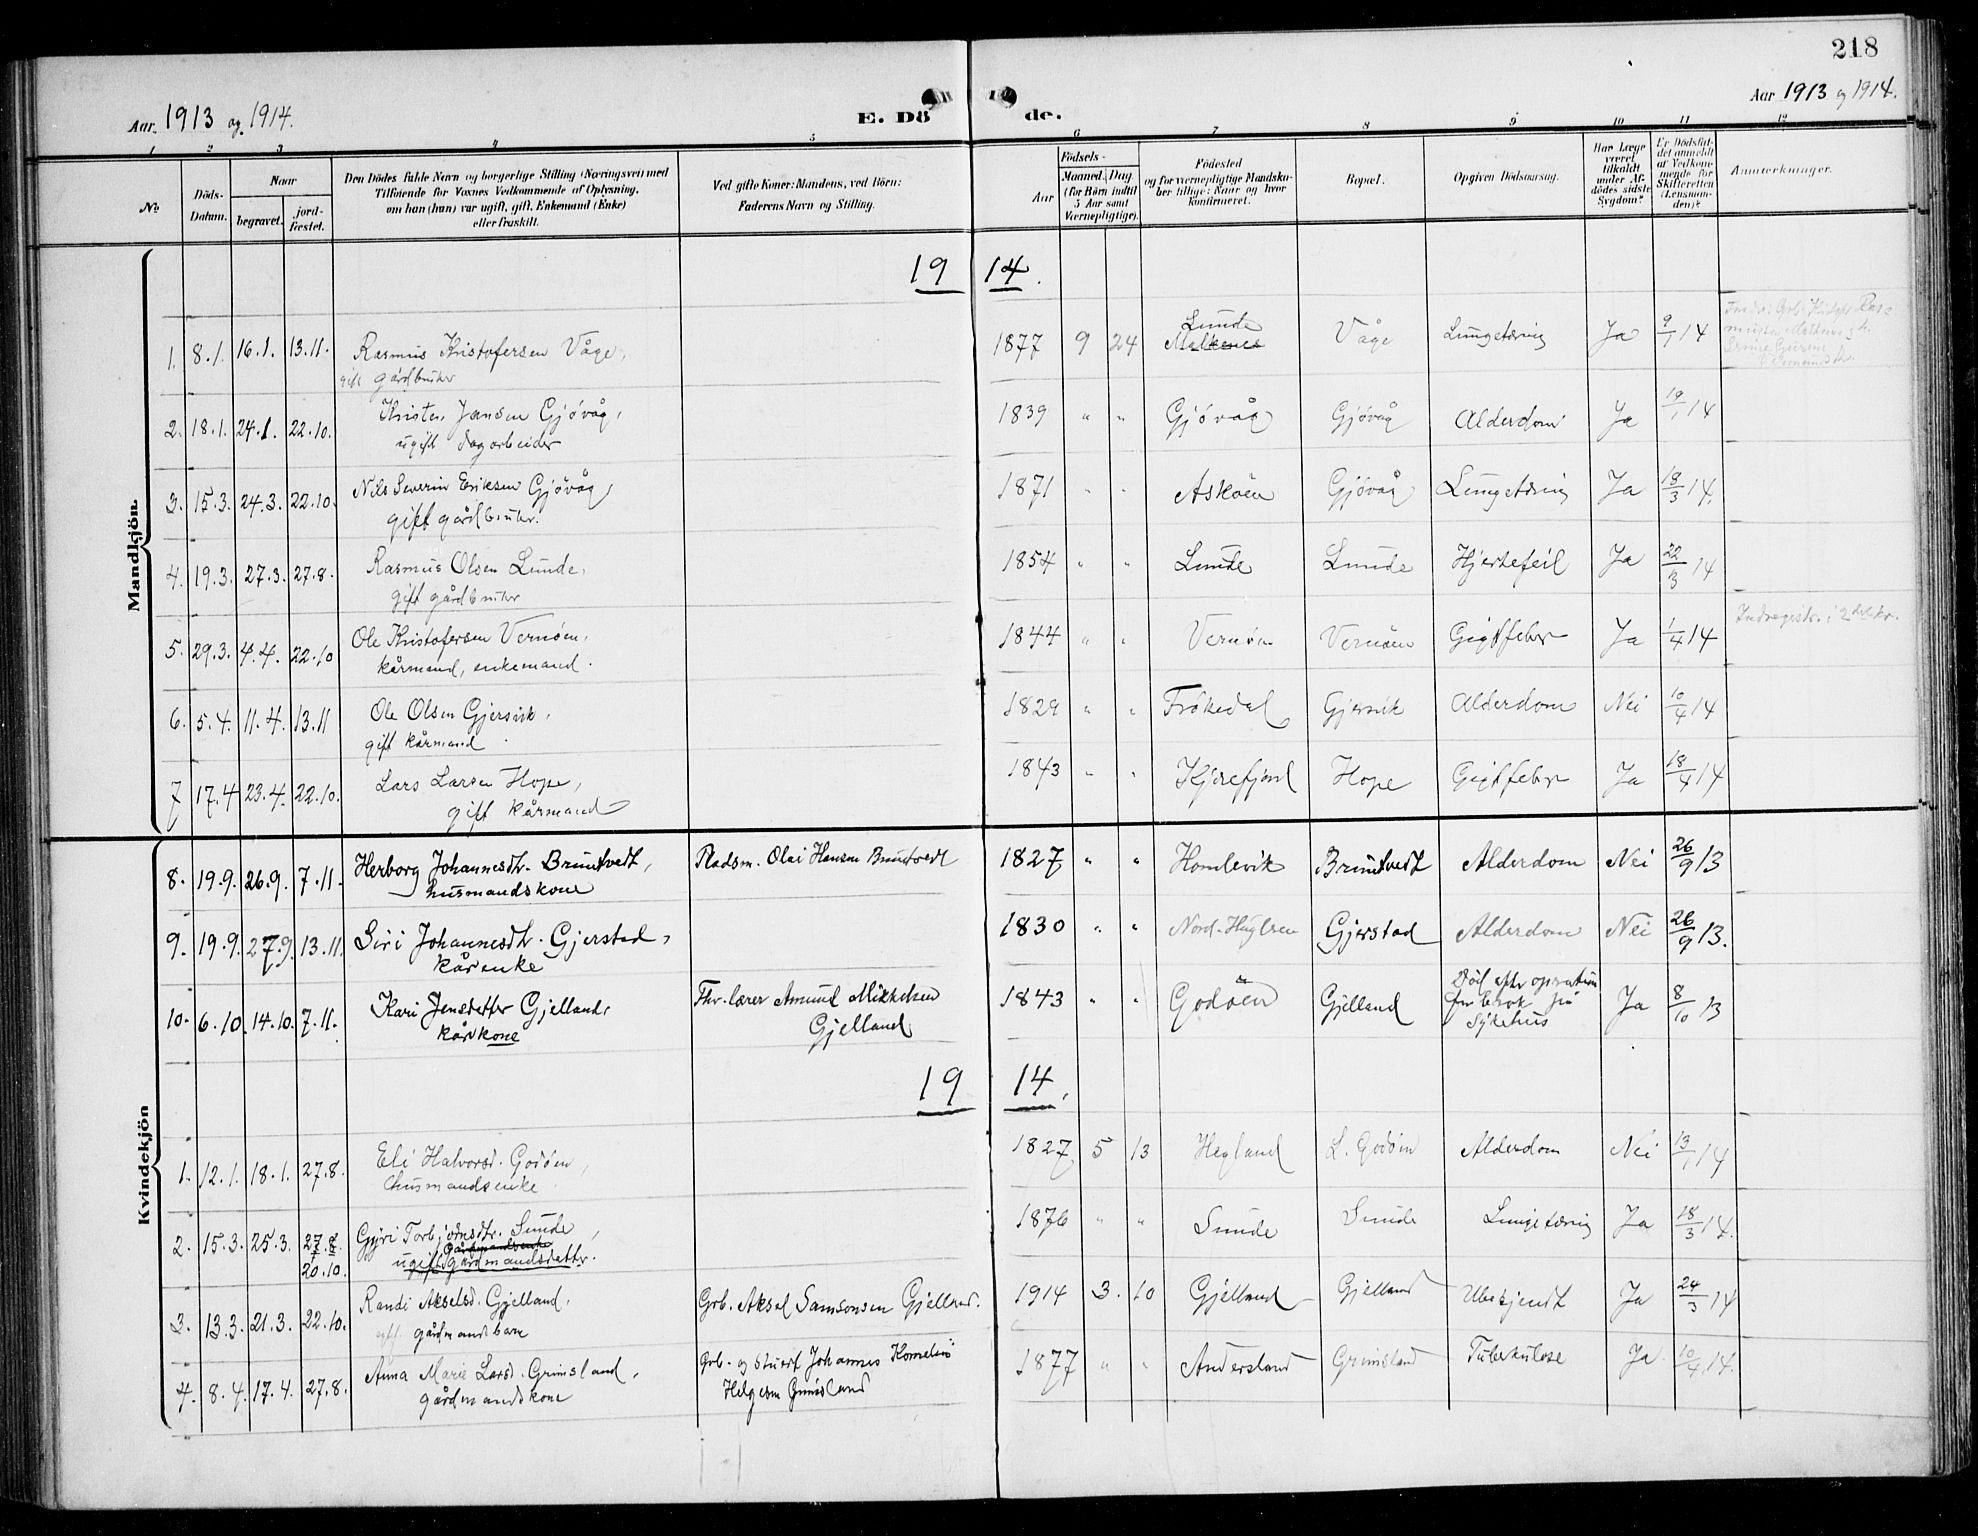 218
Aar 1913 og 1914.
E. Dö de.
Aar 1913 og 1914.
1 2 3 4 5 6 7 8 9 10 11 12
No
Döds-Datum.
Naar
begravet.
jord-fæstet.
Den Dödes fulde Navn og borgerlige Stilling (Næringsvei) med
Tilföiende for Voxnes Vedkommende af Oplysning,
om han (hun) var ugift, gift, Enkemand (Enke)
eller fraskilt.
Ved gifte Koner: Mandens, ved Börn:
Faderens Navn og Stilling.
Födsels-
Aar
Maaned. Dag
(for Börn indtil
5 Aar samt
Værnepligtige).
Födested
og for værnepligtige Mandska-
ber tillige: Naar og hvor
konfirmeret.
Bopæl.
Opgiven Dödsaarsag.
Har Læge
været
tilkaldt
under Af-
dödes sidste
Sygdom?
Er Dödsfal-
det anmeldt
af Vedkom-
mende for
Skifteretten
(Lensman-
den)?
Anmerkninger.
Mandkjön.
1914.
1. 8.1. 16.1. 13.11. Rasmus Kristofersen Våge, 1877 9 24 Lunde Våge Lungetæring Ja 9/1 14
gift gårdbruker
2. 18.1. 24.1. 22.10. Kristen Jansen Gjövåg, 1839 " " Gjövåg Gjövåg Alderdom Ja 19/1 14
ugift dagarbeider
3. 15.3. 24.3. 22.10. Nils Severin Eriksen Gjövåg, 1871 " " Asköen Gjövåg Lungetæring Ja 18/3 14.
gift gårdbruker.
4. 19.3. 27.3. 27.8. Rasmus Olsen Lunde, 1854 " " Lunde Lunde Hjertefeil Ja 22/3 14
gift gårdbruker
5. 29.3. 4.4. 22.10 Ole Kristofersen Vernöen, 1844 " " Vernöen Vernöen Gigtfeber Ja 1/4 14
kårmand, enkemand.
6. 5.4. 11.4. 13.11 Ole Olsen Gjersvik, 1829 " " Frökedal Gjersvik Alderdom Nei 10/4 14
gift kårmand
7 17.4 23.4. 22.10. Lars Larsen Hope, 1843 " " Kjörefjord Hope Gigtfeber Ja 18/4 14
gift kårmand
Kvindekjön
8. 19.9. 26.9. 7.11. Herborg Johannesdtr. Bruntvedt, Pladsm. Olai Hansen Bruntvedt 1827 " " Homlevik Bruntvedt Alderdom Nei 26/9 13
husmandskone
9. 19.9. 27.9. 13.11. Siri Johannesdtr. Gjerstad, 1830 " " Nord-Huglen Gjerstad Alderdom Nei 26/9 13.
kårenke
10. 6.10. 14.10. 7.11. Kari Jensdatter Gjelland, Fhv. lærer Amund Mikkelsen Gjelland 1843 " " Godöen Gjelland Död efter operation for brok på Sykehus Ja 8/10 13
kårkone
1914.
1. 12.1. 18.1. 27.8. Eli Halvorsd. Godöen, 1827 5 13 Hegland L. Godöen Alderdom Nei 13/1 14
husmandsenke
2. 15.3. 25.3. 27.8 20.10. Gyri Torbjörnsdtr. Lunde, 1876 " " Lunde Lunde Lungetæring Ja 18/3 14.
ugift gårdmandsdatter.
3. 13.3. 21.3. 22.10. Randi Akselsd. Gjelland, Grb. Aksel Samsonsen Gjelland. 1914 3. 10 Gjelland Gjelland Ubekjendt Ja 24/3 14
gårdmandsbarn
4. 8.4. 17.4. 27.8. Anna Marie Larsd. Grimsland, Grb. og Johannes Helgesen Grimsland 1877 " " Andersland Grimsland Tuberkulose Ja 10/4 14.
gårdmandskone